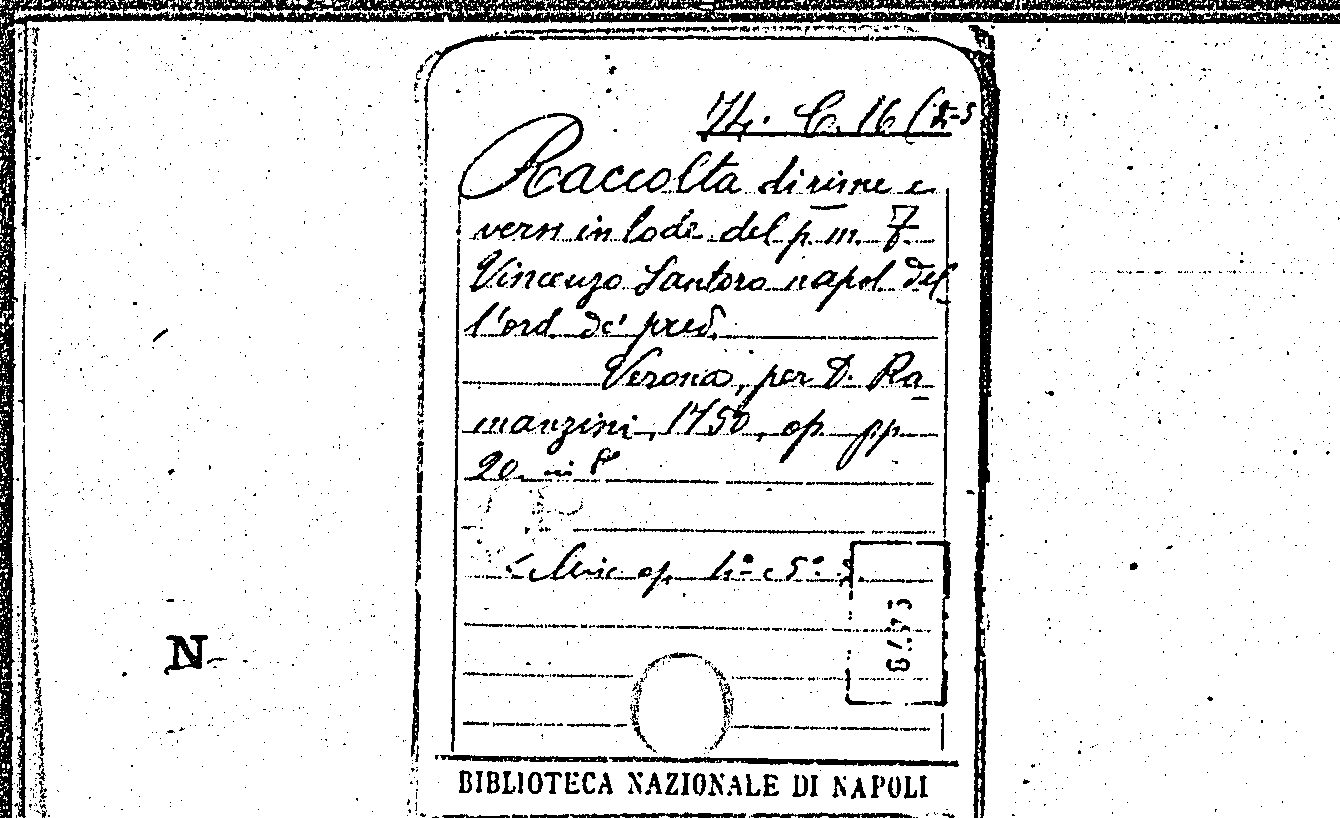 74. C. 16 (2-5
Raccolta di rime e
versi in lode del p. m. F.
Vincenzo Santoro napol. del
l'ord. de' pred.
Verona, per D. Ra
manzini, 1750, op. pp.
20 in 8°
Misc. op. 4° e 5°
BIBLIOTECA NAZIONALE DI NAPOLI
N